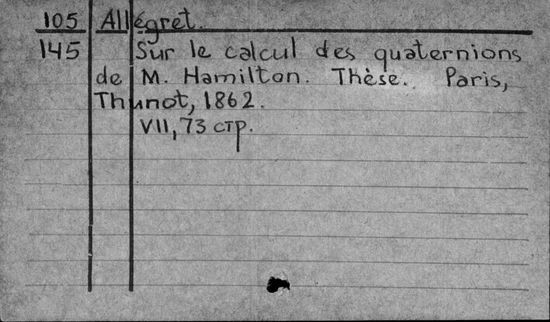 105 Allégret.
145 Sur le calcul des quaternions
de M. Hamilton. Thèse. Paris,
Thunot, 1862.
VII, 73 стр.